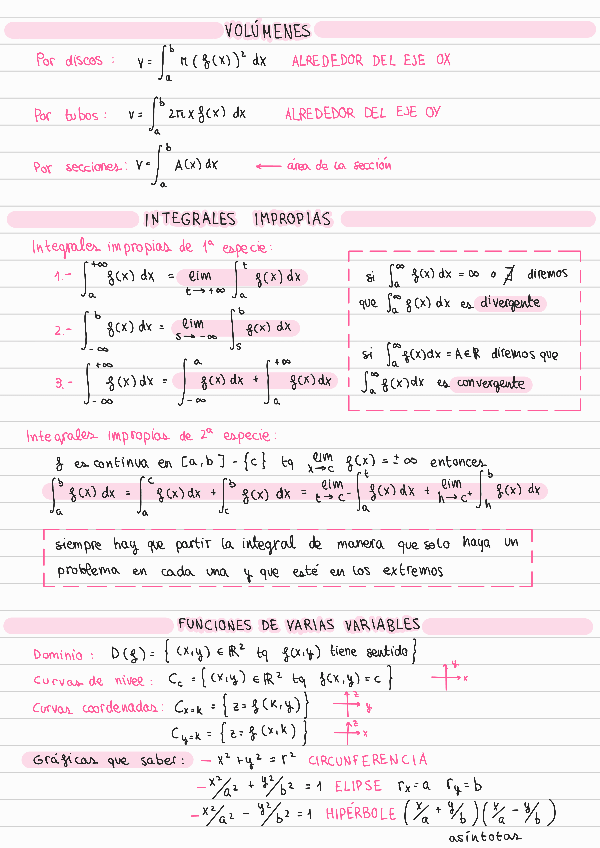 VOLÚMENES
Por discos: V = ∫_a^b π(f(x))² dx ALREDEDOR DEL EJE OX
Por tubos: V = ∫_a^b 2πx f(x) dx ALREDEDOR DEL EJE OY
Por secciones: V = ∫_a^b A(x) dx ← área de la sección
INTEGRALES IMPROPIAS
Integrales impropias de 1ª especie:
1.- ∫_a^{+∞} f(x) dx = lim_{t→+∞} ∫_a^t f(x) dx
2.- ∫_{-∞}^b f(x) dx = lim_{s→-∞} ∫_s^b f(x) dx
3.- ∫_{-∞}^{+∞} f(x) dx = ∫_{-∞}^a f(x) dx + ∫_a^{+∞} f(x) dx
si ∫_a^∞ f(x) dx = ∞ o ∄ diremos
que ∫_a^∞ f(x) dx es divergente
si ∫_a^∞ f(x) dx = A ∈ ℝ diremos que
∫_a^∞ f(x) dx es convergente
Integrales impropias de 2ª especie:
f es continua en [a,b] - {c} tq lim_{x→c} f(x) = ±∞ entonces
∫_a^b f(x) dx = ∫_a^c f(x) dx + ∫_c^b f(x) dx = lim_{t→c⁻} ∫_a^t f(x) dx + lim_{h→c⁺} ∫_h^b f(x) dx
siempre hay que partir la integral de manera que solo haya un
problema en cada una y que esté en los extremos
FUNCIONES DE VARIAS VARIABLES
Dominio: D(f) = {(x,y) ∈ ℝ² tq f(x,y) tiene sentido}
Curvas de nivel: C_c = {(x,y) ∈ ℝ² tq f(x,y) = c} y x
Curvas coordenadas: C_{x=k} = {z = f(k,y)} z y
C_{y=k} = {z = f(x,k)} z x
Gráficas que saber: - x² + y² = r² CIRCUNFERENCIA
- x²/a² + y²/b² = 1 ELIPSE r_x = a r_y = b
- x²/a² - y²/b² = 1 HIPÉRBOLE (x/a + y/b)(x/a - y/b)
asíntotas